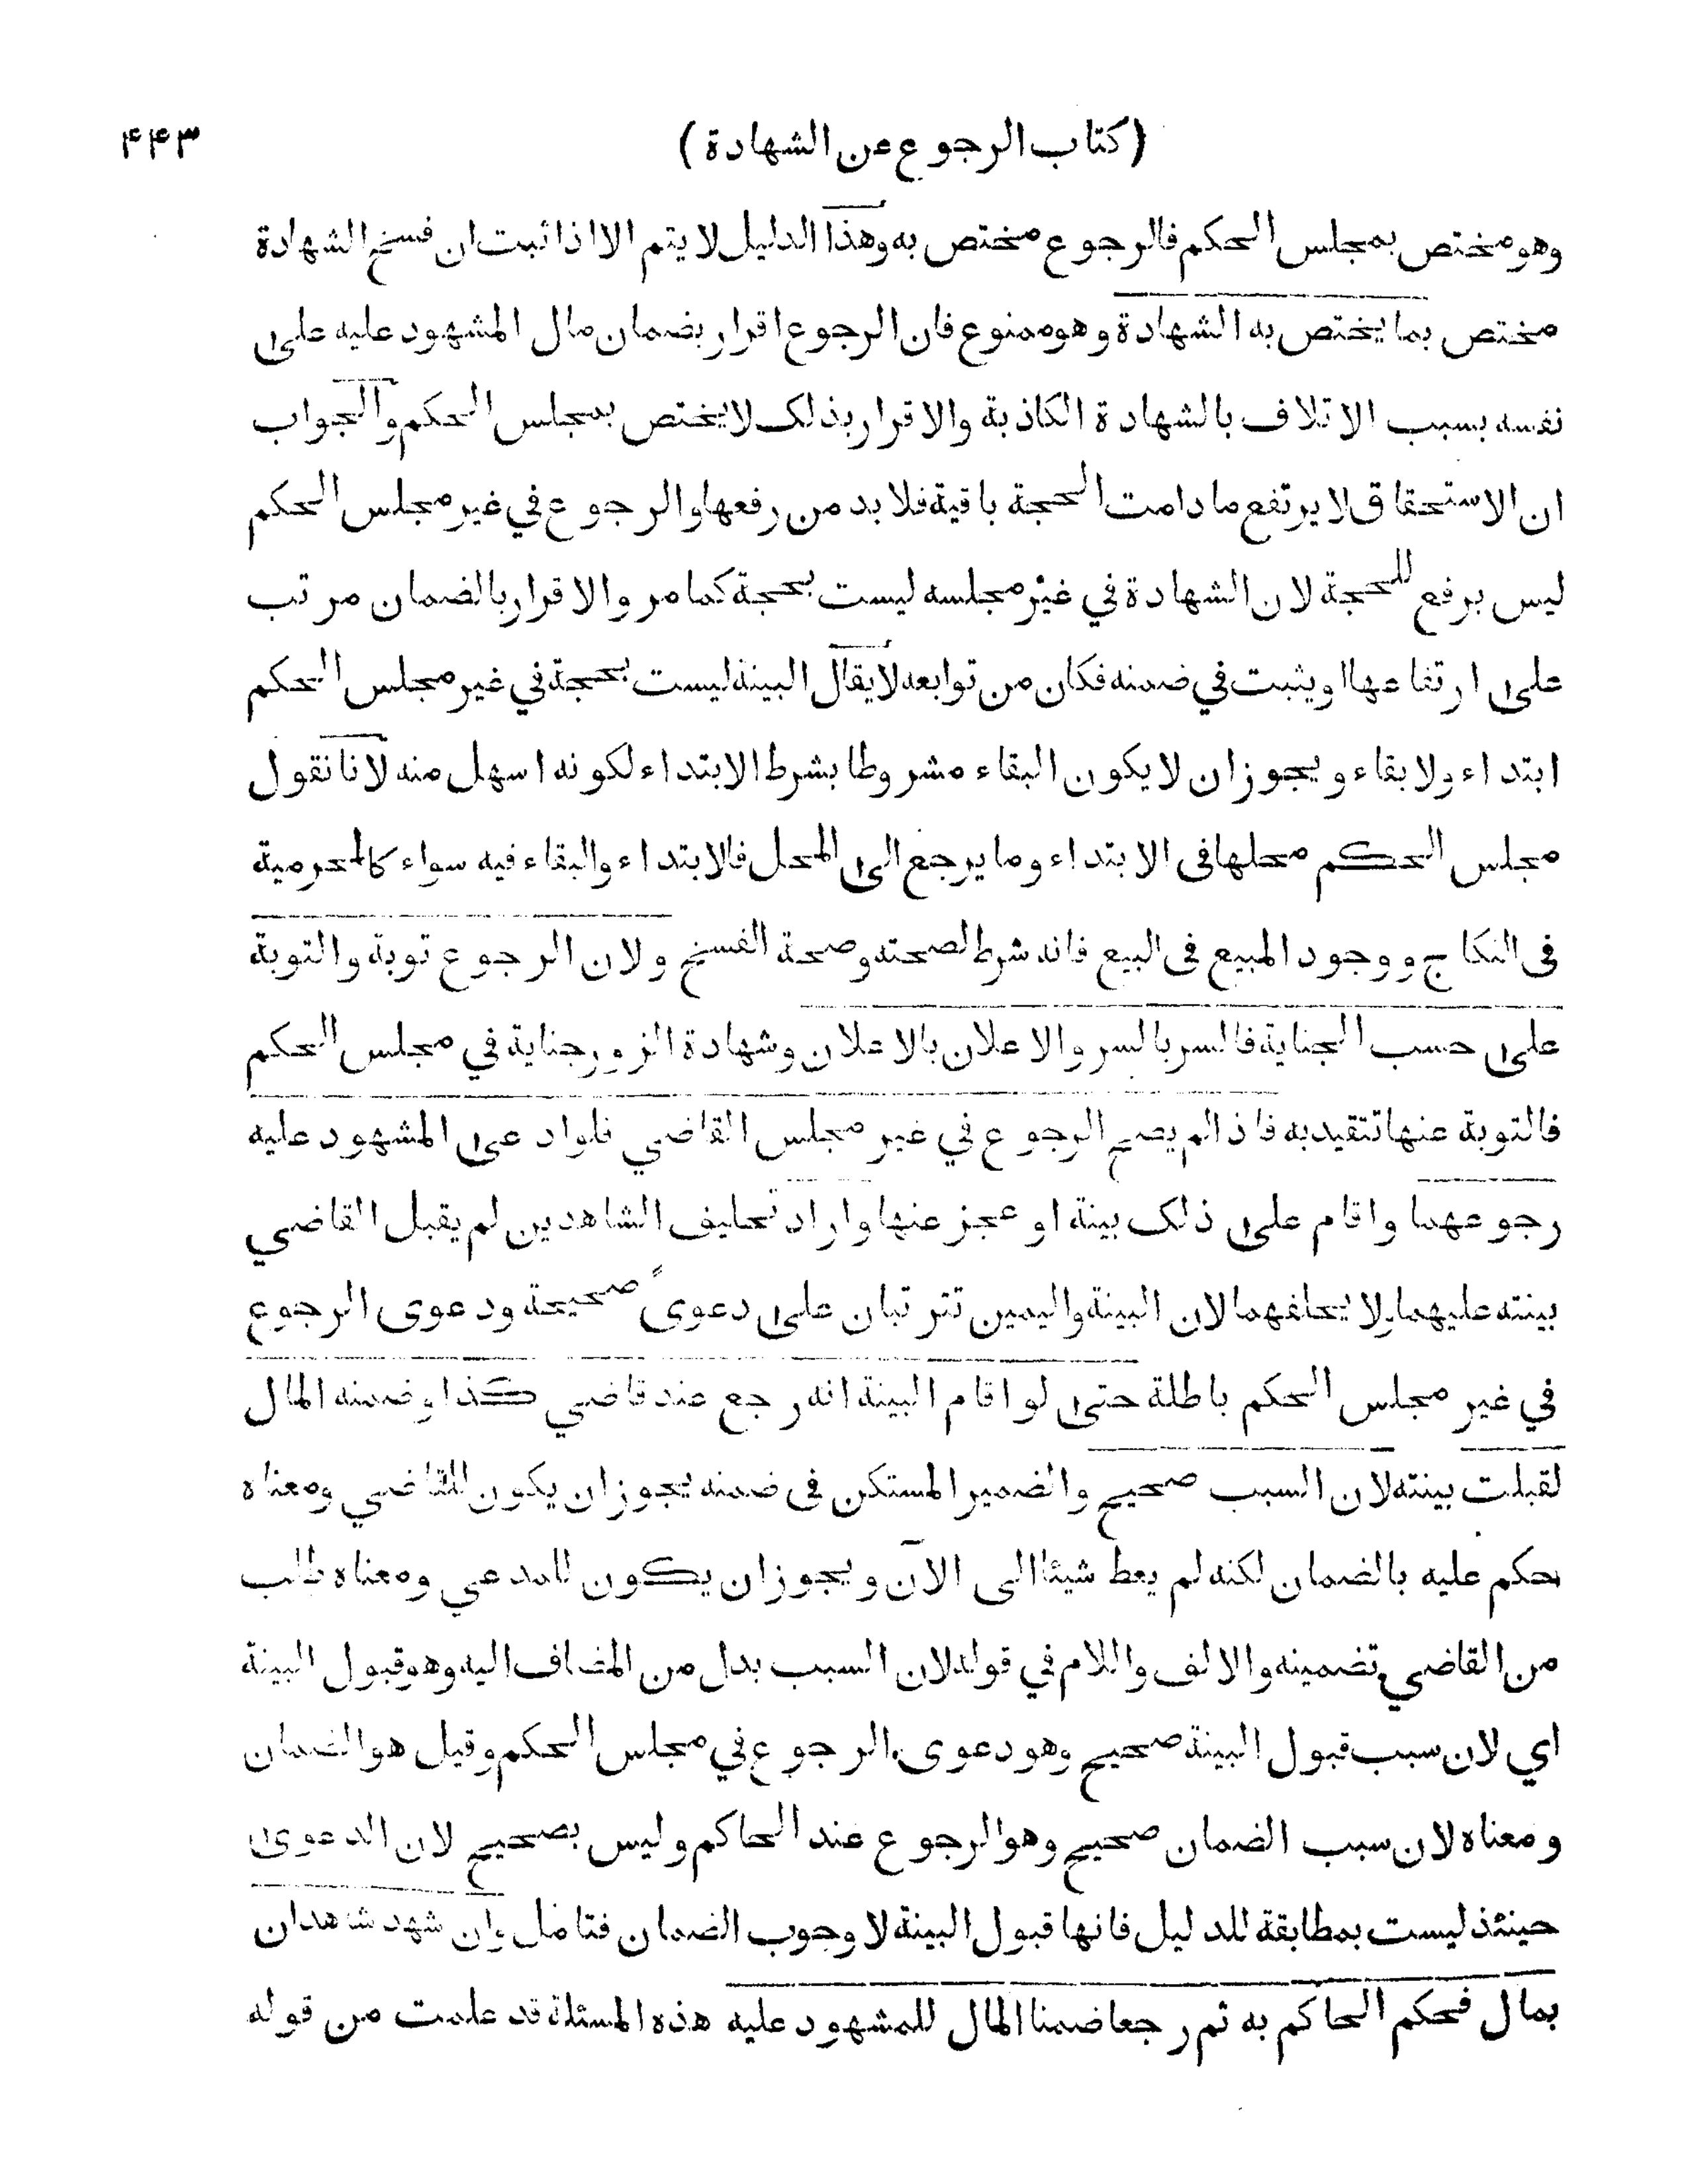 (كتاب الرجوع عن الشهادة) ۴۴۳
وهو مختص بمجلس الحكم فالرجوع مختص به وهذا الدليل لا يتم الا اذا ثبت ان فسخ الشهادة
مختص بما يختص به الشهادة وهو ممنوع فان الرجوع اقرار بضمان مال المشهود عليه على
نفسه بسبب الاتلاف بالشهادة الكاذبة والاقرار بذلك لا يختص بمجلس الحكم والجواب
ان الاستحقاق لا يرتفع ما دامت الحجة باقية فلا بد من رفعها والرجوع في غير مجلس الحكم
ليس برفع للحجة لان الشهادة في غير مجلسه ليست بحجة كما مر والاقرار بالضمان مرتب
على ارتفاعها او يثبت في ضمنه فكان من توابعه لا يقال البينة ليست بحجة في غير مجلس الحكم
ابتداء ولا بقاء ويجوز ان لا يكون البقاء مشروطا بشرط الابتداء لكونه اسهل منه لانا نقول
مجلس الحكم محلها فى الابتداء وما يرجع الى المحل فالابتداء والبقاء فيه سواء كالمحرمية
فى النكاح ووجود المبيع فى البيع فانه شرط لصحته وصحة الفسخ ولان الرجوع توبة والتوبة
على حسب الجناية فالسر بالسر والاعلان بالاعلان وشهادة الزور جناية في مجلس الحكم
فالتوبة عنها تتقيد به فاذا لم يصح الرجوع في غير مجلس القاضي فلو ادعى المشهود عليه
رجوعهما واقام على ذلك بينة او عجز عنها واراد تحليف الشاهدين لم يقبل القاضي
بينته عليهما ولا يحلفهما لان البينة واليمين تترتبان على دعوىً صحيحة ودعوى الرجوع
في غير مجلس الحكم باطلة حتى لو اقام البينة انه رجع عند قاضي كذا وضمنه المال
لقبلت بينته لان السبب صحيح والضمير المستكن فى ضمنه يجوز ان يكون للقاضي ومعناه
حكم عليه بالضمان لكنه لم يعط شيئا الى الآن ويجوز ان يكون للمدعي ومعناه طلب
من القاضي تضمينه والالف واللام في قوله لان السبب بدل من المضاف اليه وهو قبول البينة
اي لان سبب قبول البينة صحيح وهو دعوى الرجوع في مجلس الحكم وقيل هو الضمان
ومعناه لان سبب الضمان صحيح وهو الرجوع عند الحاكم وليس بصحيح لان الدعوى
حينئذ ليست بمطابقة للدليل فانها قبول البينة لا وجوب الضمان فتامل وان شهد شاهدان
بمال فحكم الحاكم به ثم رجعا ضمنا المال للمشهود عليه هذه المسئلة قد علمت من قوله